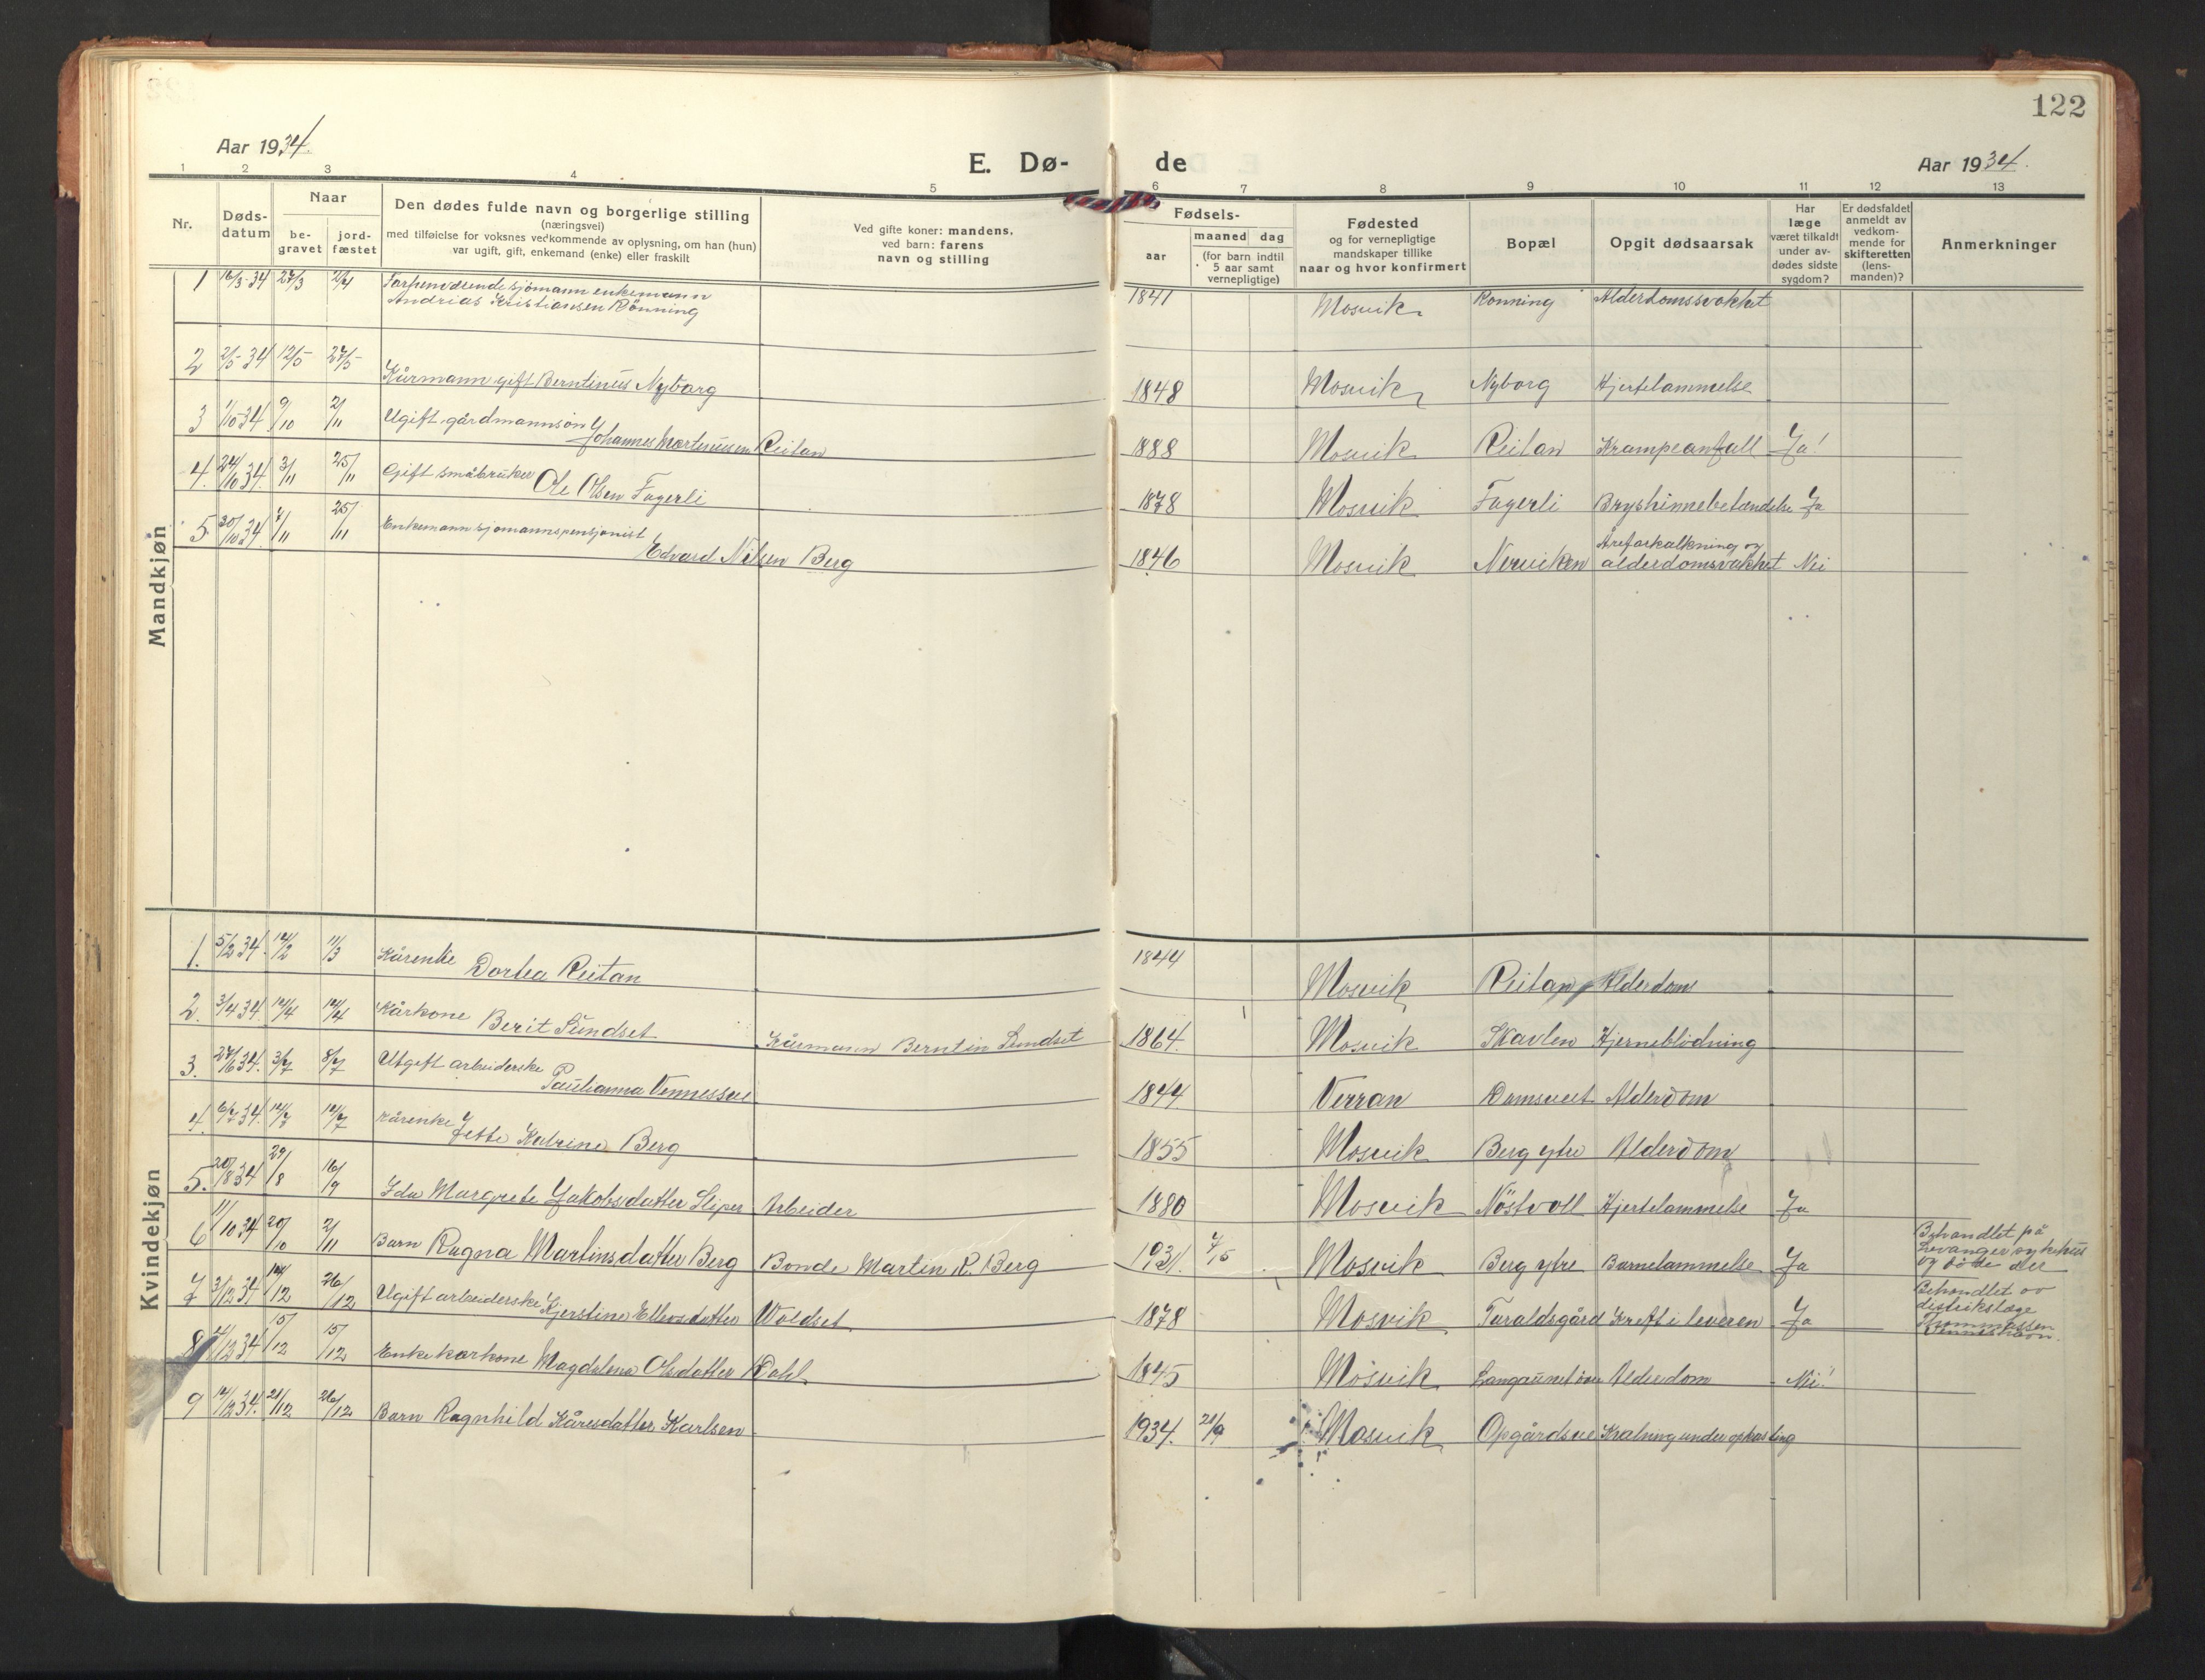 122
Aar 1934.
E. Dø-
de
Aar 1934.
1 2 3 4 5 6 7 8 9 10 11 12 13
Nr.
Døds-
datum
Naar
be-
gravet
jord-
fæstet
Den dødes fulde navn og borgerlige stilling
(næringsvei)
med tilføielse for voksnes vedkommende av oplysning, om han (hun)
var ugift, gift, enkemand (enke) eller fraskilt
Ved gifte koner: mandens,
ved barn: farens
navn og stilling
Fødsels-
aar
maaned dag
(for barn indtil
5 aar samt
vernepligtige)
Fødested
og for vernepligtige
mandskaper tillike
naar og hvor konfirmert
Bopæl
Opgit dødsaarsak
Har
læge
været tilkaldt
under av-
dødes sidste
sygdom?
Er dødsfaldet
anmeldt av
vedkom-
mende for
skifteretten
(lens-
manden)?
Anmerkninger
Mandkjøn
1 16/3 34 27/3 2/4 sjømann enkemann
Andrias Kristiansen Rönning 1841 Mosvik Rönning Alderdomssvakhet
2 2/5 34 12/5 27/5 Kårmann gift Berntinus Nyborg 1848 Mosvik Nyborg Hjertelammelse
3 1/10 34 9/10 2/11 Ugift gårdmannsön
Johannes Martinussen Reitan 1888 Mosvik Reitan Krampeanfall Ja!
4. 24/10 34. 3/11 25/11 Gift småbruker Ole Olsen Fagerli 1878 Mosvik Fagerli Bryshinnebetendelse Ja
5 30/10 34 7/11 25/11 Enkemann sjomannspensjonist
Edvard Nilsen Berg 1846 Mosvik Nerviken Åreforkalkning og
alderdomsvakhet Nei
Kvindekjøn
1. 5/2 34. 14/2 11/3 Kårenke Dortea Reitan 1844 Mosvik Reitan Alderdom
2. 3/4 34. 14/4 14/4 Kårkone Berit Sundset Kårmann Berntin Sundset 1864. Mosvik Skavlen Hjerneblödning
3. 27/6 34. 3/7 8/7 Utgift arbeiderske
Paulianna 1844 Verran Alderdom
4. 6/7 34. 14/7 14/7 Kårenke Jette Katrine Berg 1855 Mosvik Berg ytre Alderdom
5. 20/8 34 29/8 16/9 Ida Margrete Jakobsdatter Sliper Arbeider 1880 Mosvik Nöstvoll Hjertelammelse Ja
6 11/10 34 20/10 2/11 Barn Ragna Martinsdatter Berg Bonde Martin R. Berg 1931. 7/5 Mosvik Berg ytre Barnelammelse Ja Behandlet på
Levanger sykehus
og döde der
7 3/12 34 14/12 26/12 Ugift arbeiderske Kjerstine Ellevsdatter Woldset 1878 Mosvik Taraldsgård Kreft i leveren Ja Behandlet av
distriktslæge
Thommassen
Vennesham.
8 /12 34 15/12 15/12 Enke karkone Magdalena Olsdatter Dahl 1845 Mosvik Langaunet övre Alderdom Nei!
9 14/12 34. 21/12 26/12 Barn Ragnhild Kåresdatter Karlsen 1934. 21/9 Mosvik Opgårdsve Kvalning under